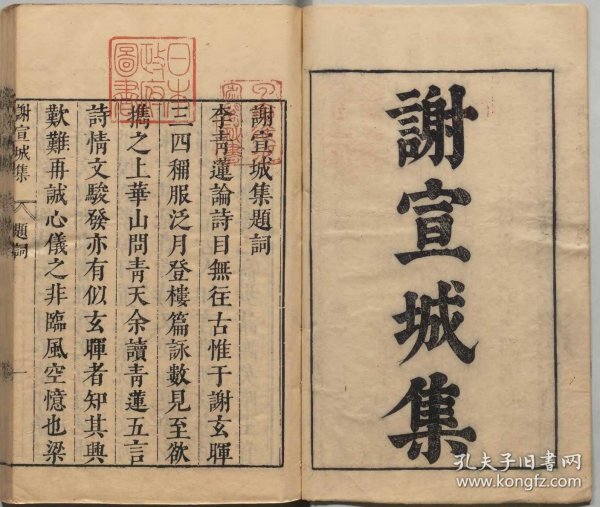 謝宣城集
謝宣城集題詞
李青蓮論詩目無往古惟于謝玄暉
三四稱服泛月登樓篇詠數見至欲
攜之上華山問青天余讀青蓮五言
詩情文駿發亦有似玄暉者知其興
歎難再誠心儀之非臨風空憶也梁
謝宣城集
題詞
一
日本
政府
圖書
孔夫子旧书网
www.kongfz.com